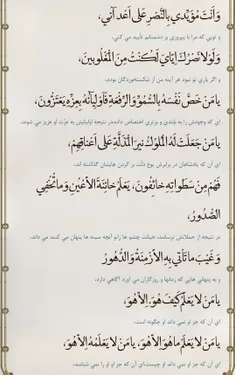 وَأَنْتَ مُؤَيِّدِي بِالنَّصْرِ عَلَى أَعْدَآئِي،
و تویی که مرا با پیروزی بر دشمنانم تأیید می کنی،
وَلَوْلَا نَصْرُكَ إِيَّايَ لَكُنْتُ مِنَ الْمَغْلُوبِينَ،
و اگر یاری تو نبود هر آینه من از شکستخوردگان بودم،
يَا مَنْ خَصَّ نَفْسَهُ بِالسُّمُوِّ وَالرِّفْعَةِ فَأَوْلِيَآئُهُ بِعِزِّهِ يَعْتَزُّونَ،
ای که وجودش را به بلندی و برتری اختصاص داده،در نتیجه اولیایش به عزّت او عزیز می شوند،
يَا مَنْ جَعَلَتْ لَهُ الْمُلُوكُ نِيرَ الْمَذَلَّةِ عَلَى أَعْنَاقِهِمْ،
ای آن که پادشاهان در برابرش یوغ ذلّت بر گردن هایشان گذاشته اند،
فَهُمْ مِنْ سَطَوَاتِهِ خَآئِفُونَ، يَعْلَمُ خَآئِنَةَ الْأَعْيُنِ وَمَا تُخْفِي
الصُّدُورُ،
در نتیجه از حملاتش ترسانند، خیانت چشم ها رانو آنچه سینه ها پنهان می کنند می داند،
وَغَيْبَ مَا تَأْتِي بِهِ الْأَزْمِنَةُ وَالدُّهُورُ
و به پنهانی هایی که زمانها و روزگاران می آورد آگاهی دارد،
يَا مَنْ لَا يَعْلَمُ كَيْفَ هُوَ إِلَّا هُوَ،
ای آن که جز او نمی داند او چگونه است،
يَا مَنْ لَا يَعْلَمُ مَا هُوَ إِلَّا هُوَ، يَا مَنْ لَا يَعْلَمُهُ إِلَّا هُوَ،
ای آن که جز او نمی داند او چیست،ای آن که جز او او را نمی شناسد،